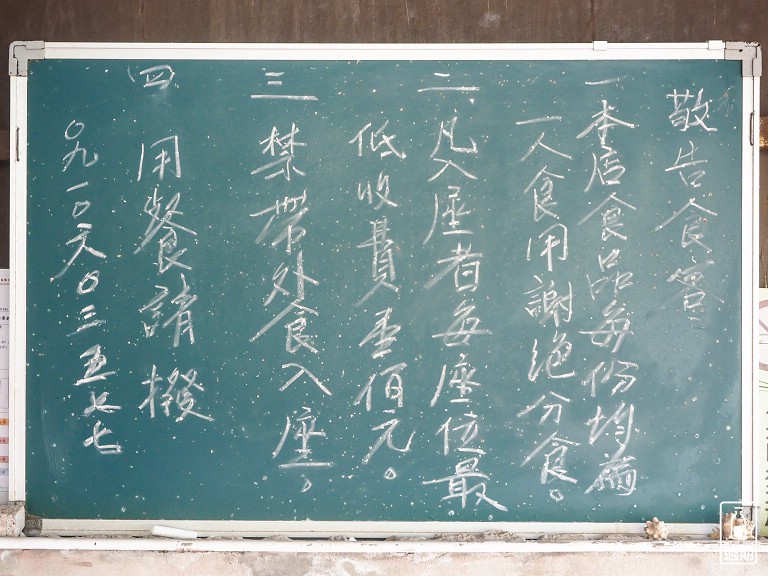 敬告食客
一 本店食品每份均為
一人食用謝絕分食。
二、凡入座者每座位最
低收費壹佰元。
三 禁帶外食入座。
四 用餐請撥
〇九一〇六〇三五七七